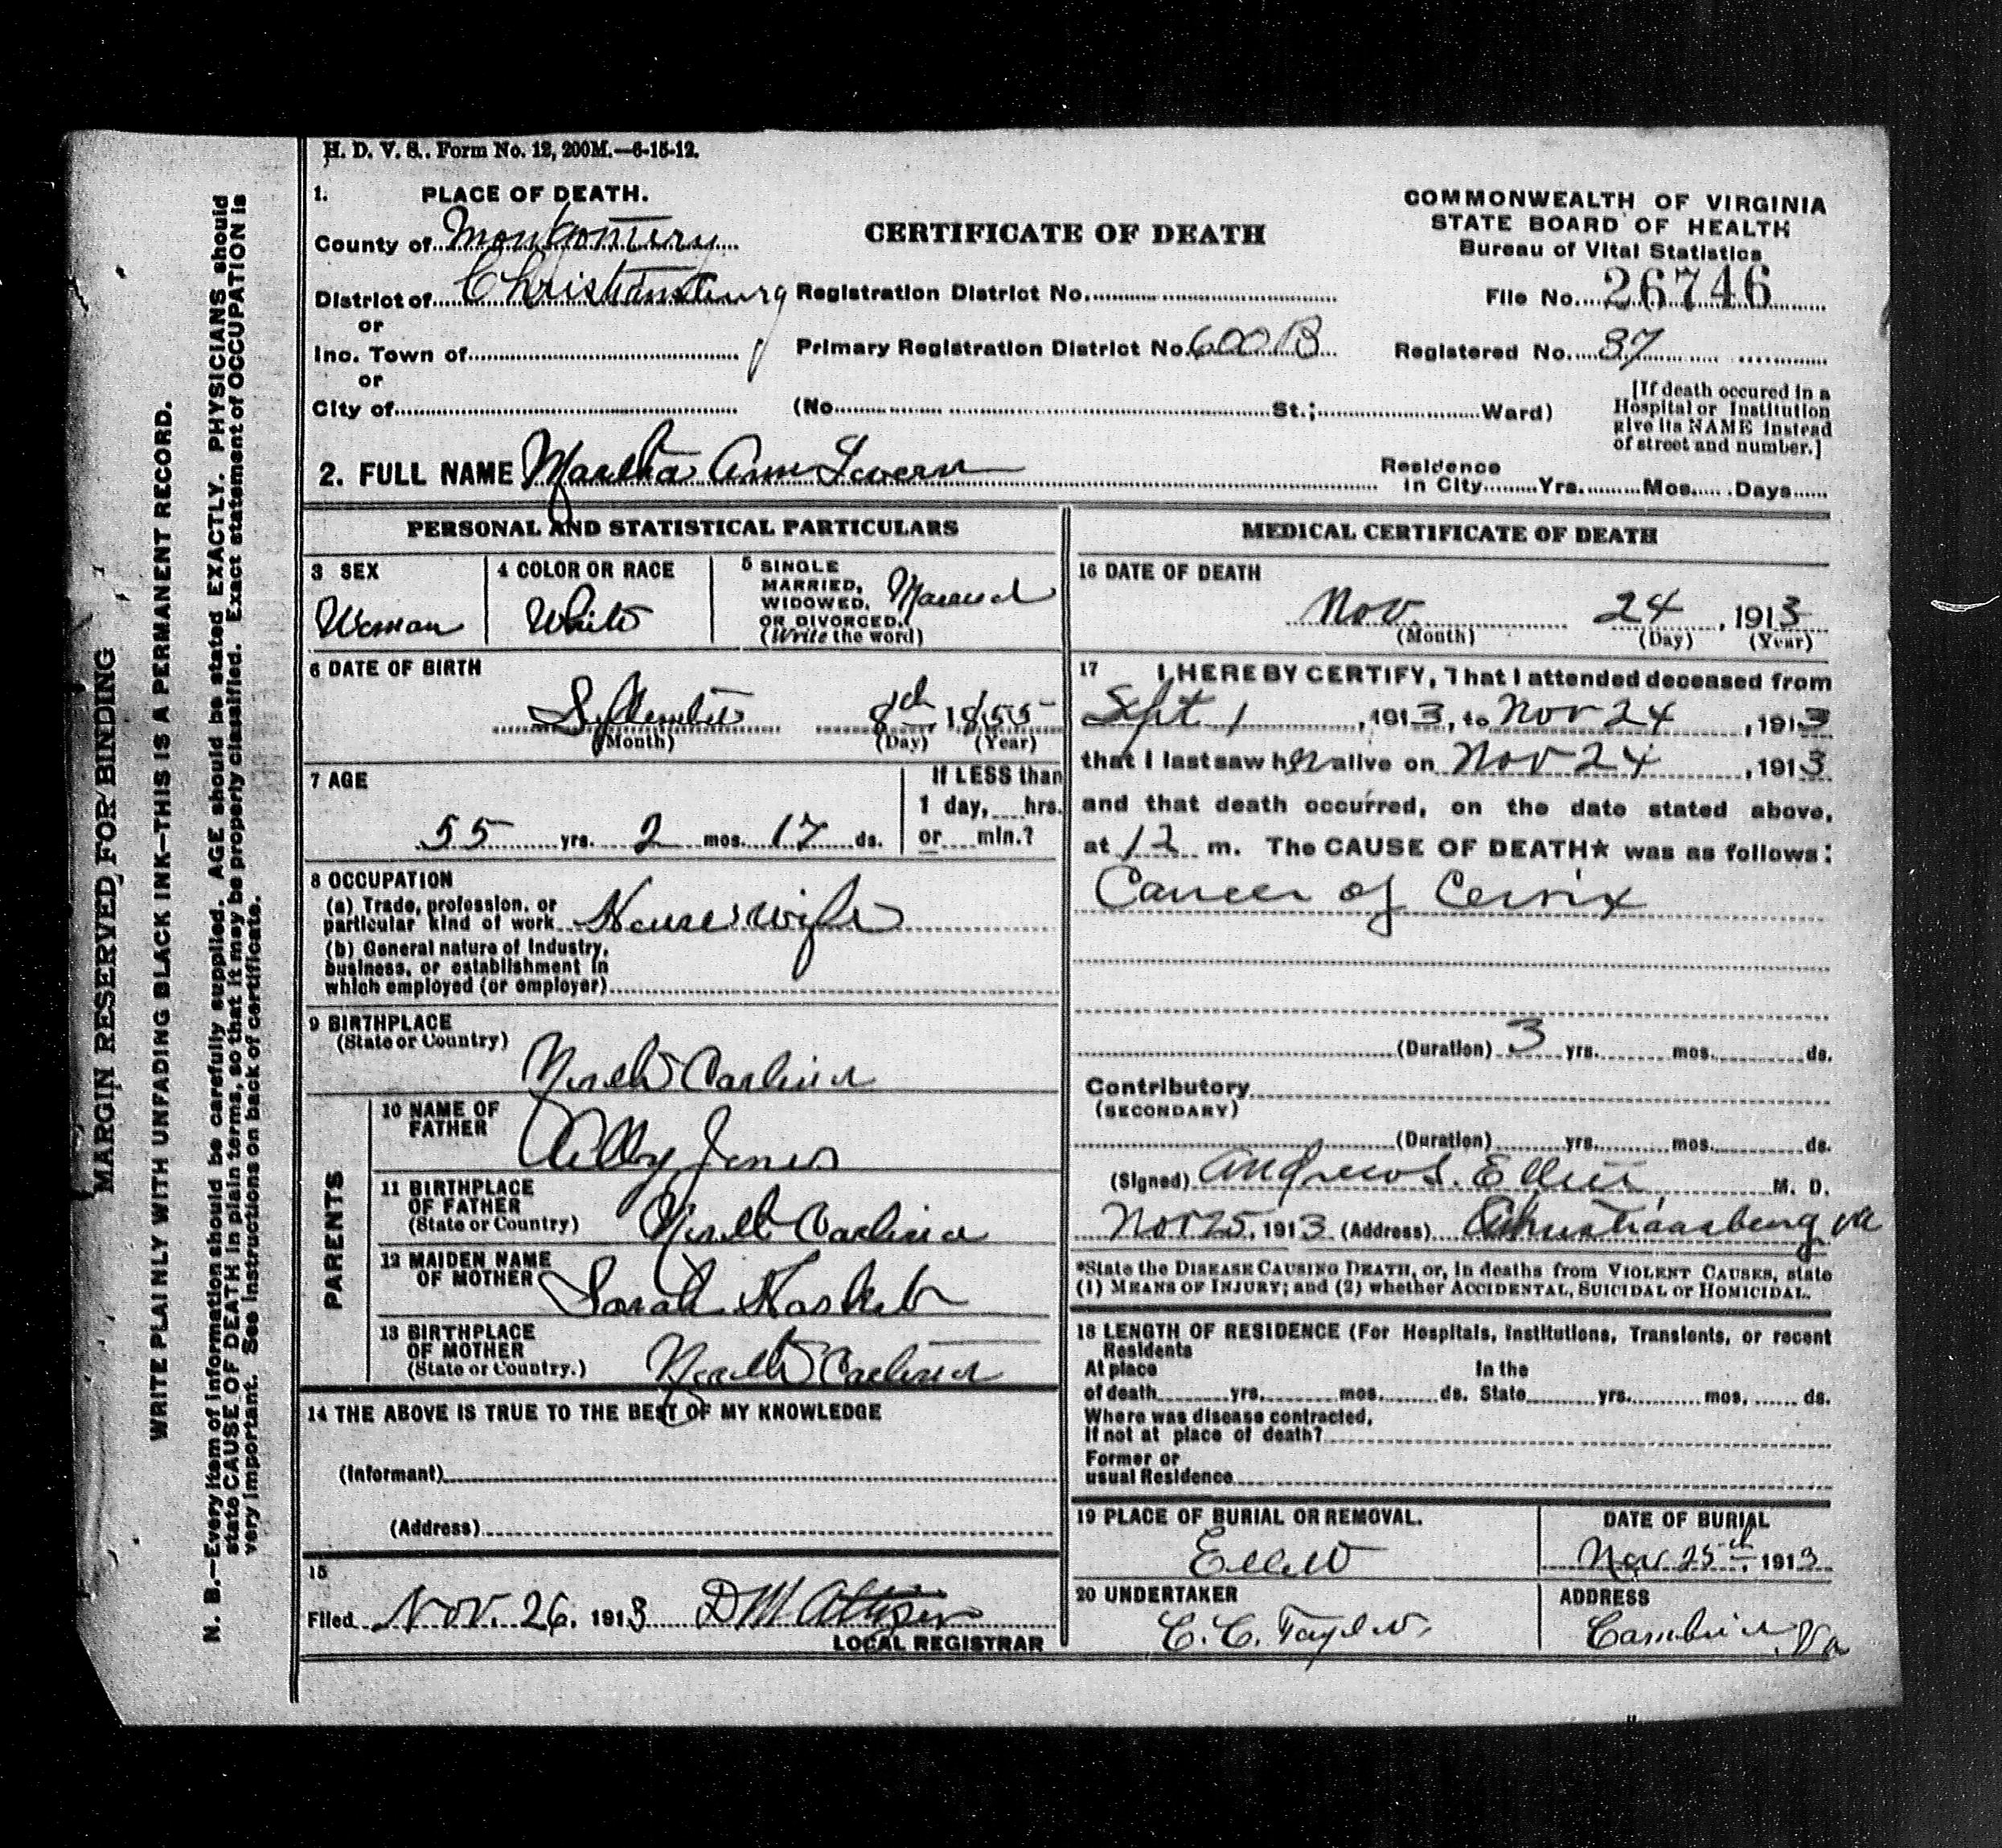 H. D. V. S.. Form No. 12, 200M.—6-15-12.
1. PLACE OF DEATH.
County of Montgomery
District of Christiansburg
or
Inc. Town of
or
City of
CERTIFICATE OF DEATH
Registration District No.
Primary Registration District No. 600 B
(No. St.; Ward)
COMMONWEALTH OF VIRGINIA
STATE BOARD OF HEALTH
Bureau of Vital Statistics
File No. 26746
Registered No. 37
[If death occured in a
Hospital or Institution
give its NAME instead
of street and number.]
2. FULL NAME Martha Ann
Residence
in City Yrs. Mos. Days
PERSONAL AND STATISTICAL PARTICULARS
3 SEX
Woman
4 COLOR OR RACE
White
5 SINGLE
MARRIED,
WIDOWED,
OR DIVORCED.
(Write the word)
Married
6 DATE OF BIRTH
September 8th 1855
(Month) (Day) (Year)
7 AGE
55 yrs. 2 mos. 17 ds.
If LESS than
1 day, hrs.
or min.?
8 OCCUPATION
(a) Trade, profession, or
particular kind of work House wife
(b) General nature of Industry,
business, or establishment in
which employed (or employer)
9 BIRTHPLACE
(State or Country)
North Carlina
PARENTS
10 NAME OF
FATHER
Jones
11 BIRTHPLACE
OF FATHER
(State or Country)
North Carlina
12 MAIDEN NAME
OF MOTHER
Sarah
13 BIRTHPLACE
OF MOTHER
(State or Country.)
North Carlina
14 THE ABOVE IS TRUE TO THE BEST OF MY KNOWLEDGE
(Informant)
(Address)
15
Filed Nov. 26, 1913 D M
LOCAL REGISTRAR
MEDICAL CERTIFICATE OF DEATH
16 DATE OF DEATH
Nov. 24, 1913
(Month) (Day) (Year)
17 I HEREBY CERTIFY, That I attended deceased from
Sept 1, 1913, to Nov 24, 1913
that I last saw her alive on Nov 24, 1913
and that death occurred, on the date stated above,
at 12 m. The CAUSE OF DEATH* was as follows:
Cancer of Cervix
(Duration) 3 yrs. mos. ds.
Contributory
(SECONDARY)
(Duration) yrs. mos. ds.
(Signed) Andrew S. M. D.
Nov 25, 1913 (Address) Christiansburg Va
*State the DISEASE CAUSING DEATH, or, in deaths from VIOLENT CAUSES, state
(1) MEANS OF INJURY; and (2) whether ACCIDENTAL, SUICIDAL or HOMICIDAL.
18 LENGTH OF RESIDENCE (For Hospitals, Institutions, Transients, or recent
Residents
At place In the
of death yrs. mos. ds. State yrs. mos. ds.
Where was disease contracted,
If not at place of death?
Former or
usual Residence
19 PLACE OF BURIAL OR REMOVAL.
Ellett
DATE OF BURIAL
Nov. 25th, 1913
20 UNDERTAKER
C. C. Taylor.
ADDRESS
Cambria, Va
MARGIN RESERVED FOR BINDING
WRITE PLAINLY WITH UNFADING BLACK INK—THIS IS A PERMANENT RECORD.
N. B.—Every item of information should be carefully supplied. AGE should be stated EXACTLY. PHYSICIANS should
state CAUSE OF DEATH in plain terms, so that it may be properly classified. Exact statement of OCCUPATION is
very important. See instructions on back of certificate.